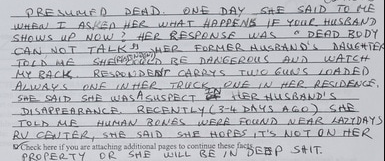 PRESUMED DEAD. ONE DAY SHE SAID TO ME
WHEN I ASKED HER WHAT HAPPENS IF YOUR HUSBAND
SHOWS UP NOW? HER RESPONSE WAS "DEAD BODY
CAN NOT TALK". HER FORMER HUSBAND'S DAUGHTER
TOLD ME SHE (RESPONDENT) COULD BE DANGEROUS AND WATCH
MY BACK. RESPONDENT CARRYS TWO GUNS LOADED
ALWAYS ONE IN HER TRUCK, ONE IN HER RESIDENCE.
SHE SAID SHE WAS A SUSPECT IN HER HUSBAND'S
DISAPPEARANCE. RECENTLY (3-4 DAYS AGO) SHE
TOLD ME HUMAN BONES WERE FOUND NEAR LAZYDAYS
RV CENTER, SHE SAID SHE HOPES IT'S NOT ON HER
Check here if you are attaching additional pages to continue these facts.
PROPERTY OR SHE WILL BE IN DEEP SHIT.